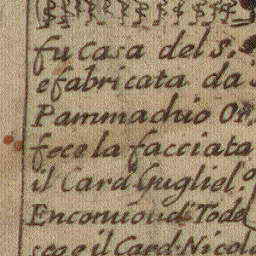 fu Casa del S.
e fabricata da S
Pammachio Or.
fece la facciata
il Card Gugliel.º
Enconuoudi Tode
sco e il Card. Nicol